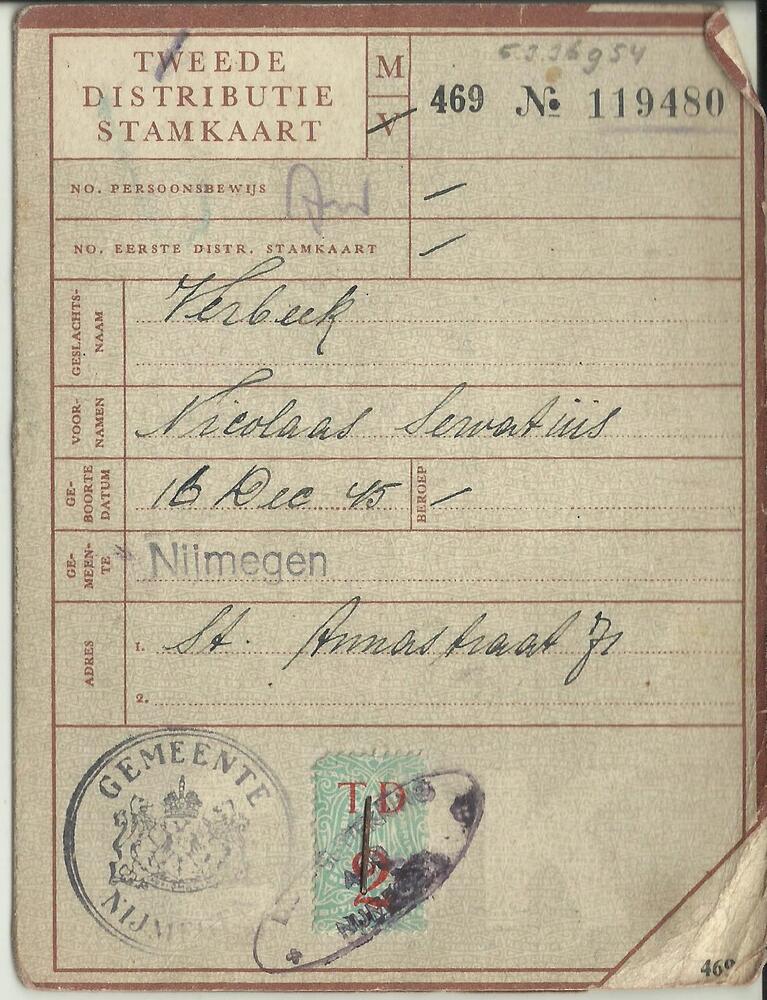 TWEEDE
DISTRIBUTIE
STAMKAART
M
V
469 No. 119480
NO. PERSOONSBEWIJS —
NO. EERSTE DISTR. STAMKAART —
GESLACHTS-
NAAM
Verbeek
VOOR-
NAMEN
Nicolaas Servatius
GE-
BOORTE
DATUM
16 Dec 45
BEROEP —
GE-
MEEN-
TE
Nijmegen
ADRES
1. St. Annastraat 71
2.
GEMEENTE
NIJMEGEN
TD
2
469
NIJMEGEN
469